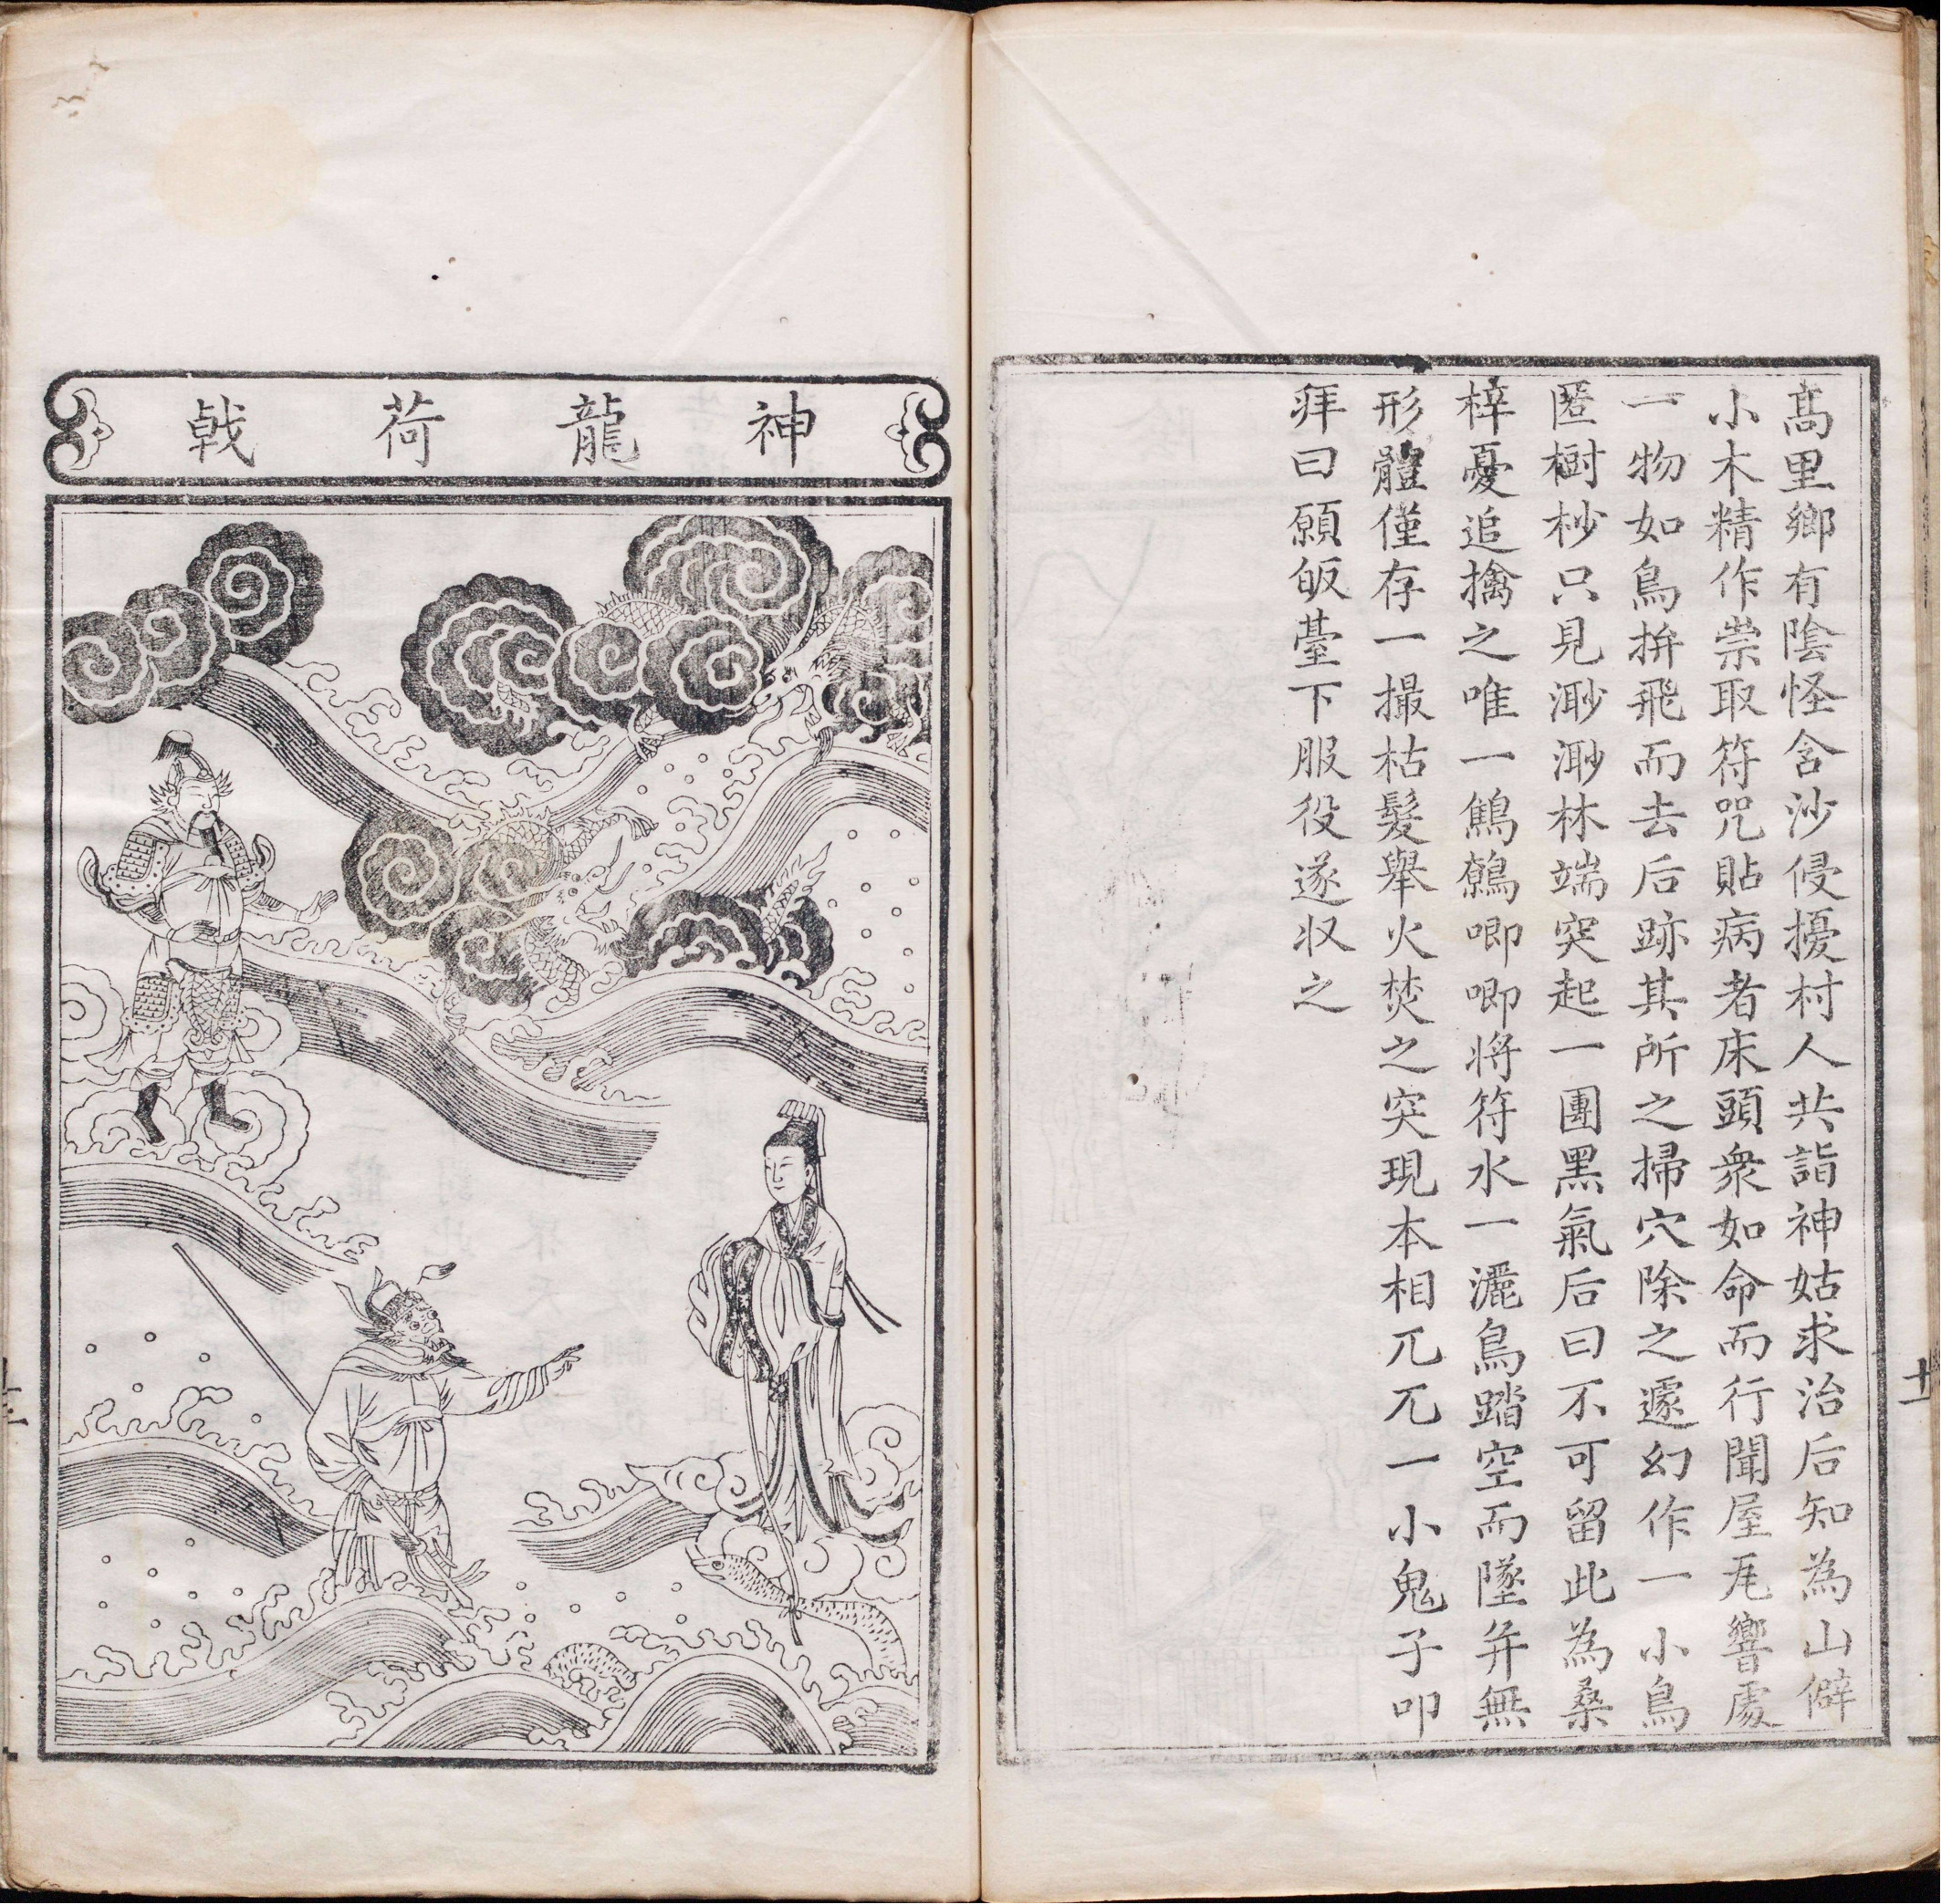 高里鄉有陰怪含沙侵擾村人共詣神姑求治后知為山僻
小木精作祟取符咒貼病者床頭衆如命而行聞屋瓦響處
一物如鳥拚飛而去后跡其所之掃穴除之遽幻作一小鳥
匿樹杪只見渺渺林端突起一團黑氣后曰不可留此為桑
梓憂追擒之唯一鷦鷯唧唧將符水一灑鳥踏空而墜并無
形體僅存一撮枯髮舉火焚之突現本相兀兀一小鬼子叩
拜曰願皈臺下服役遂収之
十一
神龍荷戟